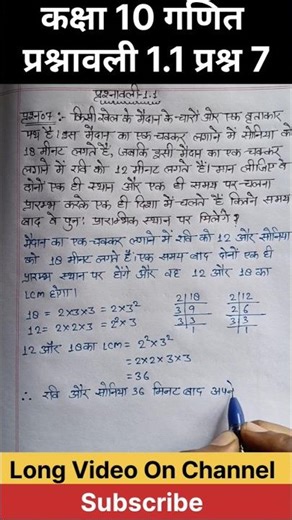 कक्षा 10 गणित
प्रश्नावली 1.1 प्रश्न 7
प्रश्नावली-1.1
प्रश्न-07:- किसी खेल के मैदान के चारों ओर एक वृत्ताकार
पथ है। इस मैदान का एक चक्कर लगाने में सोनिया को
18 मीनट लगते हैं, जबकि इसी मैदान का एक चक्कर
लगाने में रवि को 12 मीनट लगते हैं। मान लीजिए वे
दोनों एक ही स्थान और एक ही समय पर चलना
प्रारम्भ करके एक ही दिशा में चलते हैं कितने समय
बाद वे पुनः प्रारम्भिक स्थान पर मिलेंगे?
मैदान का एक चक्कर लगाने में रवि को 12 और सोनिया
को 18 मीनट लगते हैं। एक समय बाद दोनों एक ही
प्रारम्भ स्थान पर होंगे और वह 12 और 18 का
LCM होगा।
18 = 2×3×3 = 2×3²
12 = 2×2×3 = 2²×3
2|18
3|9
3|3
1
2|12
2|6
3|3
1
12 और 18 का LCM = 2²×3²
= 2×2×3×3
= 36
∴ रवि और सोनिया 36 मिनट बाद अपने
Long Video On Channel
Subscribe